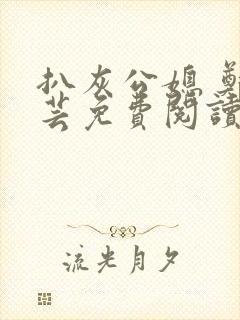 扒灰公媳
芸免費閱讀
流光月夕